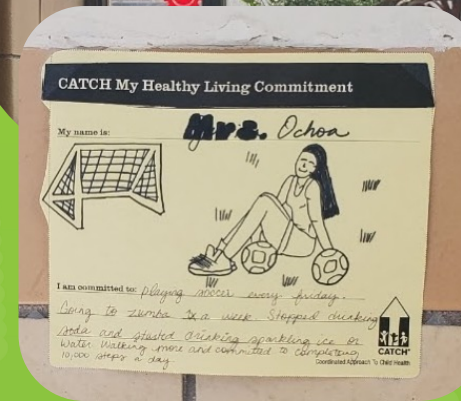 CATCH My Healthy Living Commitment
My name is: Mrs. Ochoa
I am committed to: playing soccer every friday.
Going to zumba 3x a week Stopped drinking
soda and started drinking sparkling ice or
water walking more and committed to completing
10,000 steps a day
CATCH
Coordinated Approach To Child Health